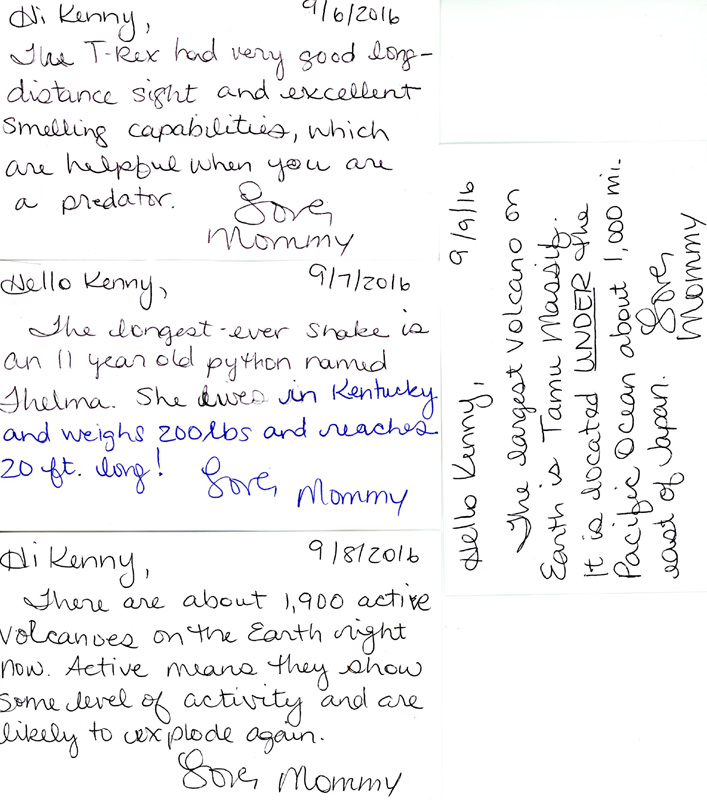 Hi Kenny, 9/6/2016
The T-Rex had very good long-
distance sight and excellent
smelling capabilities, which
are helpful when you are
a predator. Love,
Mommy
Hello Kenny, 9/7/2016
The longest-ever snake is
an 11 year old python named
Thelma. She lives in Kentucky
and weighs 200 lbs and reaches
20 ft. long! Love, Mommy
Hi Kenny, 9/8/2016
There are about 1,900 active
volcanoes on the Earth right
now. Active means they show
some level of activity and are
likely to explode again.
Love, Mommy
Hello Kenny, 9/9/16
The largest volcano on
Earth is Tamu Massif.
It is located UNDER the
Pacific Ocean about 1,000 mi.
east of Japan. Love,
Mommy